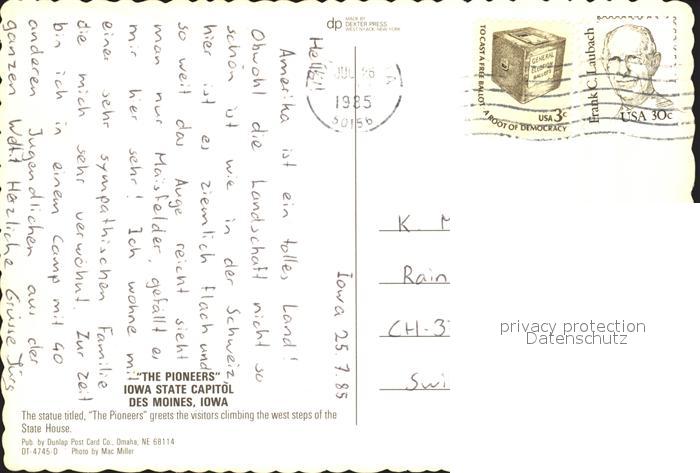 Iowa 25.7.85
Hello!
Amerika ist ein tolles Land!
Obwohl die Landschaft nicht so
schön ist wie in der Schweiz
hier ist es ziemlich flach und
so weit das Auge reicht sieht
man nur Maisfelder, gefällt es
mir hier sehr! Ich wohne mit
einer sehr sympathischen Familie
die mich sehr verwöhnt. Zur Zeit
bin ich in einem Camp mit 40
anderen Jugendlichen aus der
ganzen Welt! Herzliche Grüsse Jürg
dp MADE BY
DEXTER PRESS
WEST NYACK, NEW YORK
JUL 26
1985
50156
TO CAST A FREE BALLOT
A ROOT OF DEMOCRACY
GENERAL
ELECTION
BALLOTS
USA 3c
Frank C. Laubach
USA 30c
K. M
Rain
CH-3
Swi
privacy protection
Datenschutz
"THE PIONEERS"
IOWA STATE CAPITOL
DES MOINES, IOWA
The statue titled, "The Pioneers" greets the visitors climbing the west steps of the
State House.
Pub. by Dunlap Post Card Co., Omaha, NE 68114
DT-4745-D Photo by Mac Miller